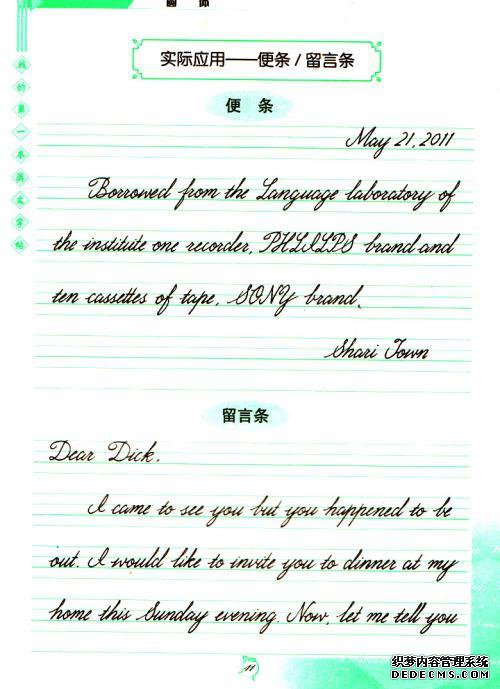 实际应用——便条/留言条
便 条
May 21, 2011
Borrowed from the Language laboratory of
the institute one recorder, PHILIPS brand and
ten cassettes of tape, SONY brand.
Shari Town
留言条
Dear Dick,
I came to see you but you happened to be
out. I would like to invite you to dinner at my
home this Sunday evening. Now, let me tell you
我的第一本英文字帖
11
织梦内容管理系统
DEDECMS.COM